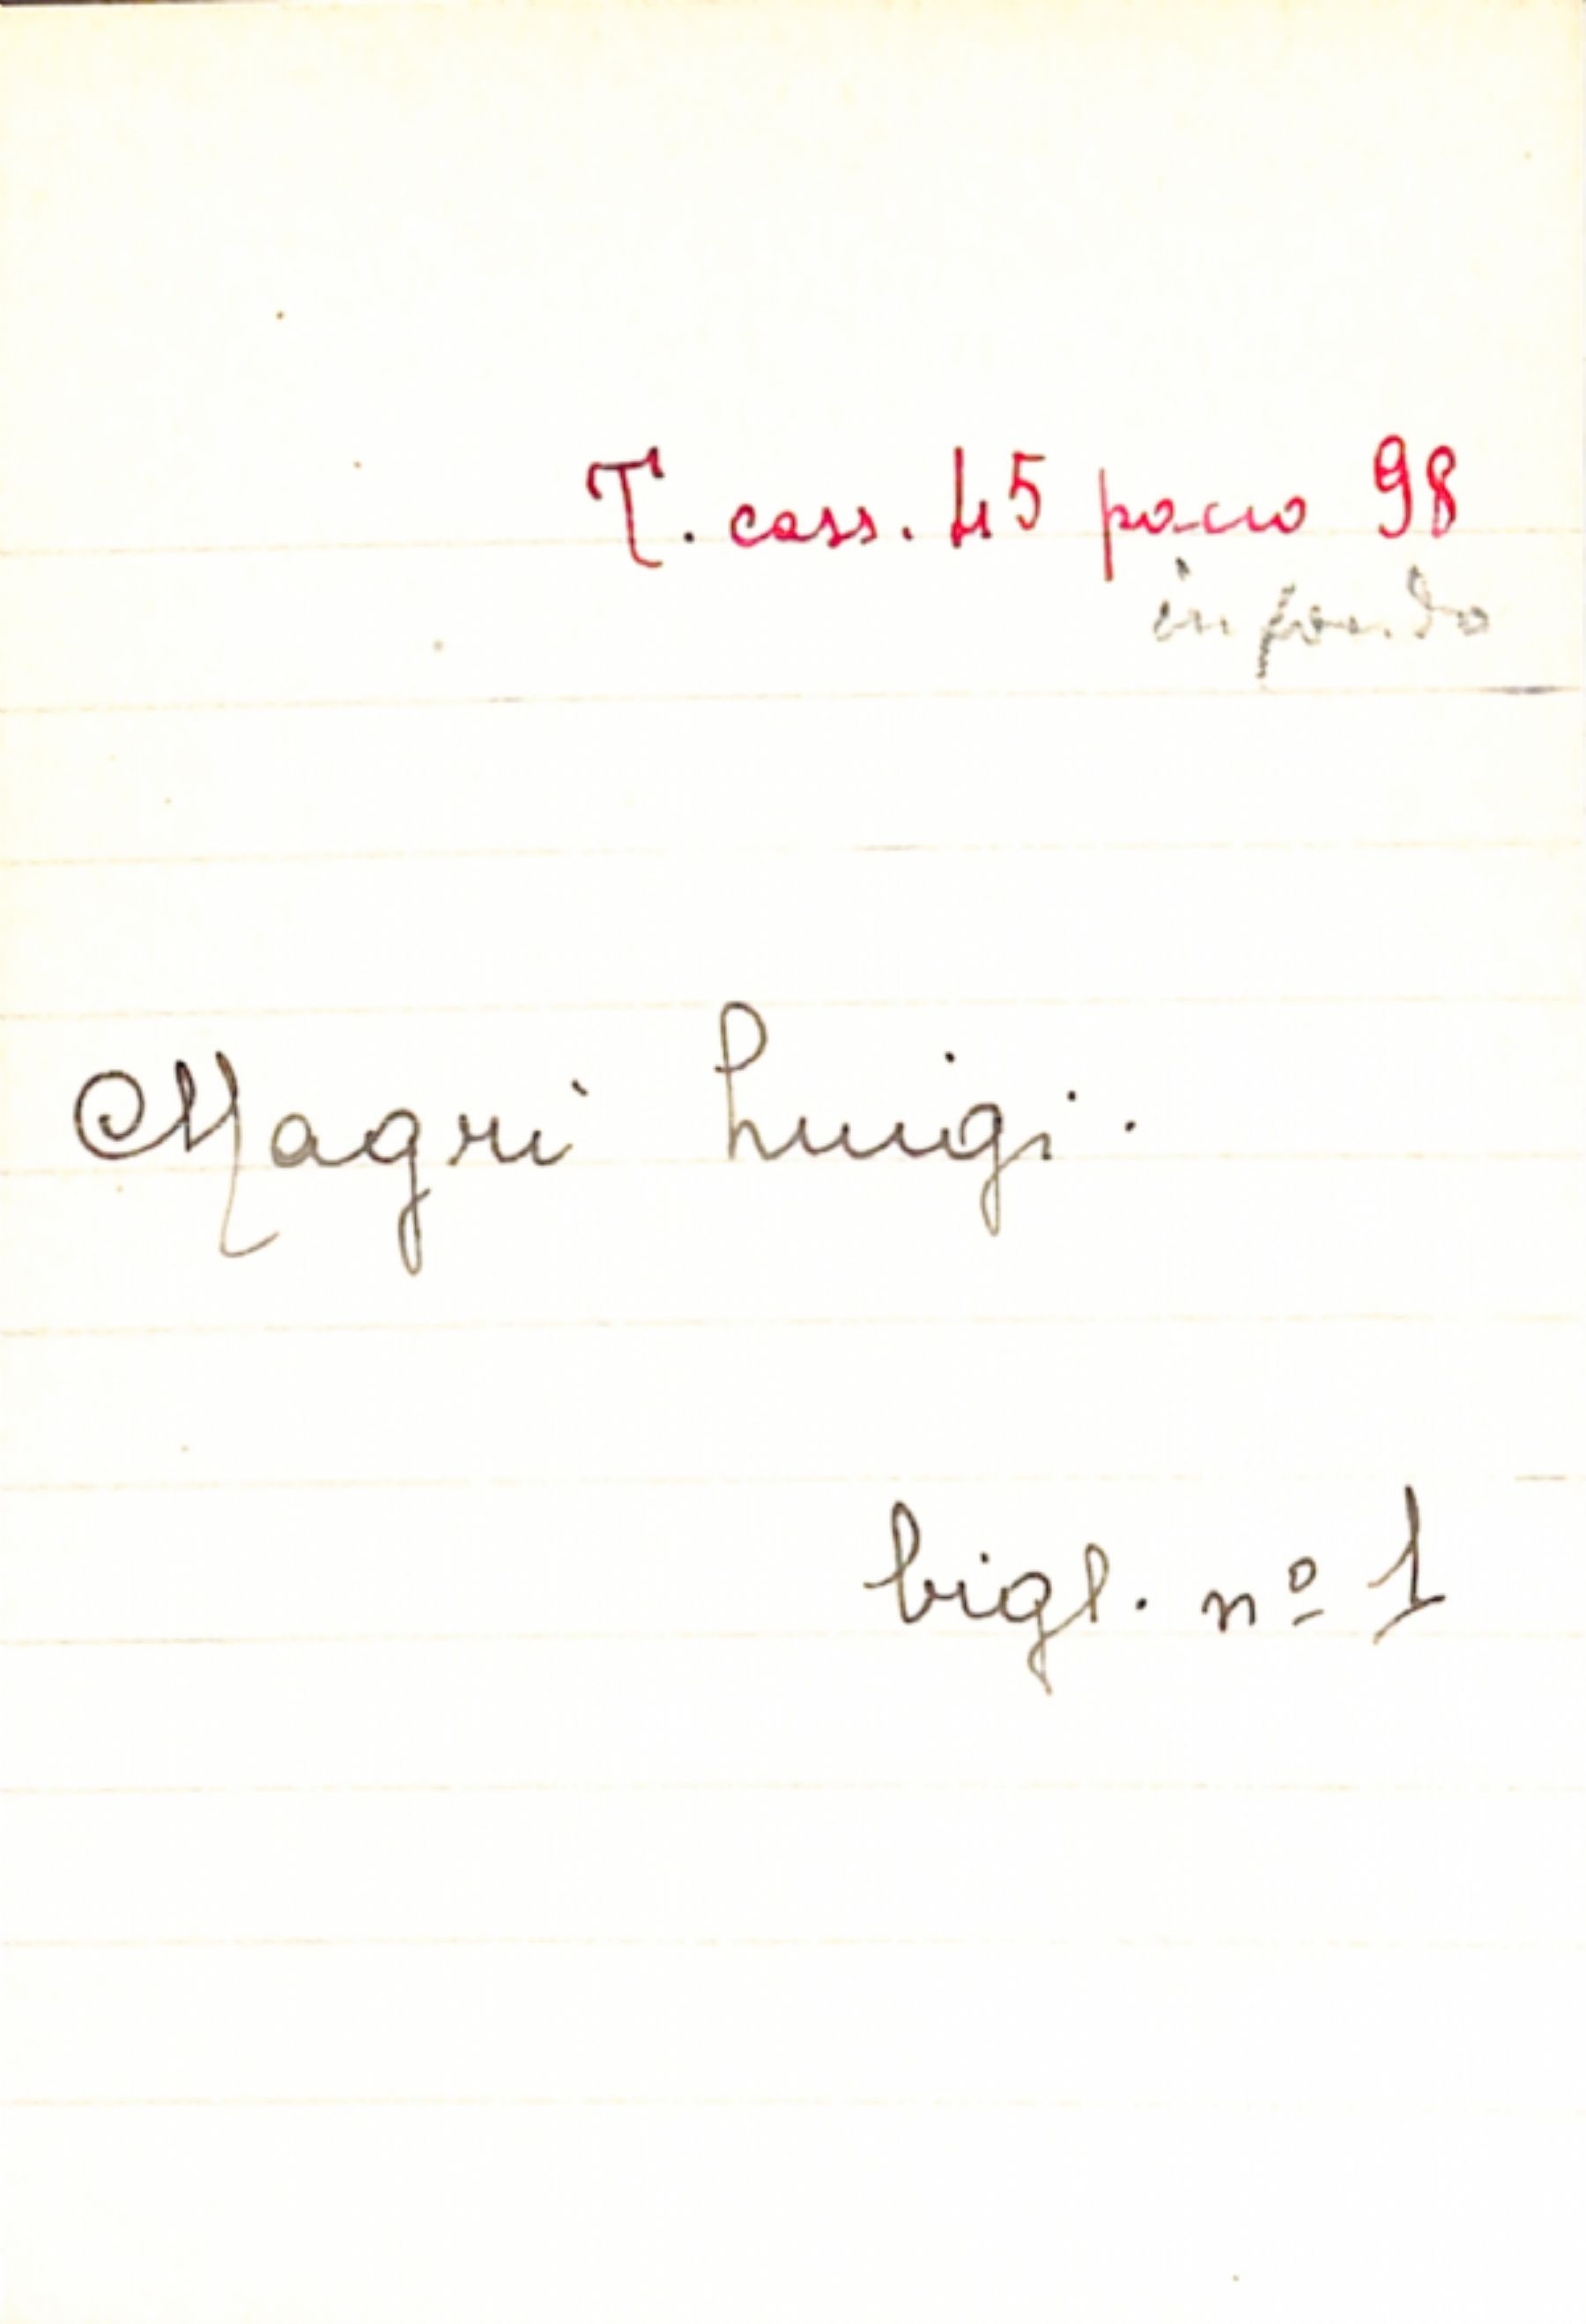 T. cass. 45 pacco 98
in fondo
Magrì Luigi.
bigl. nº 1